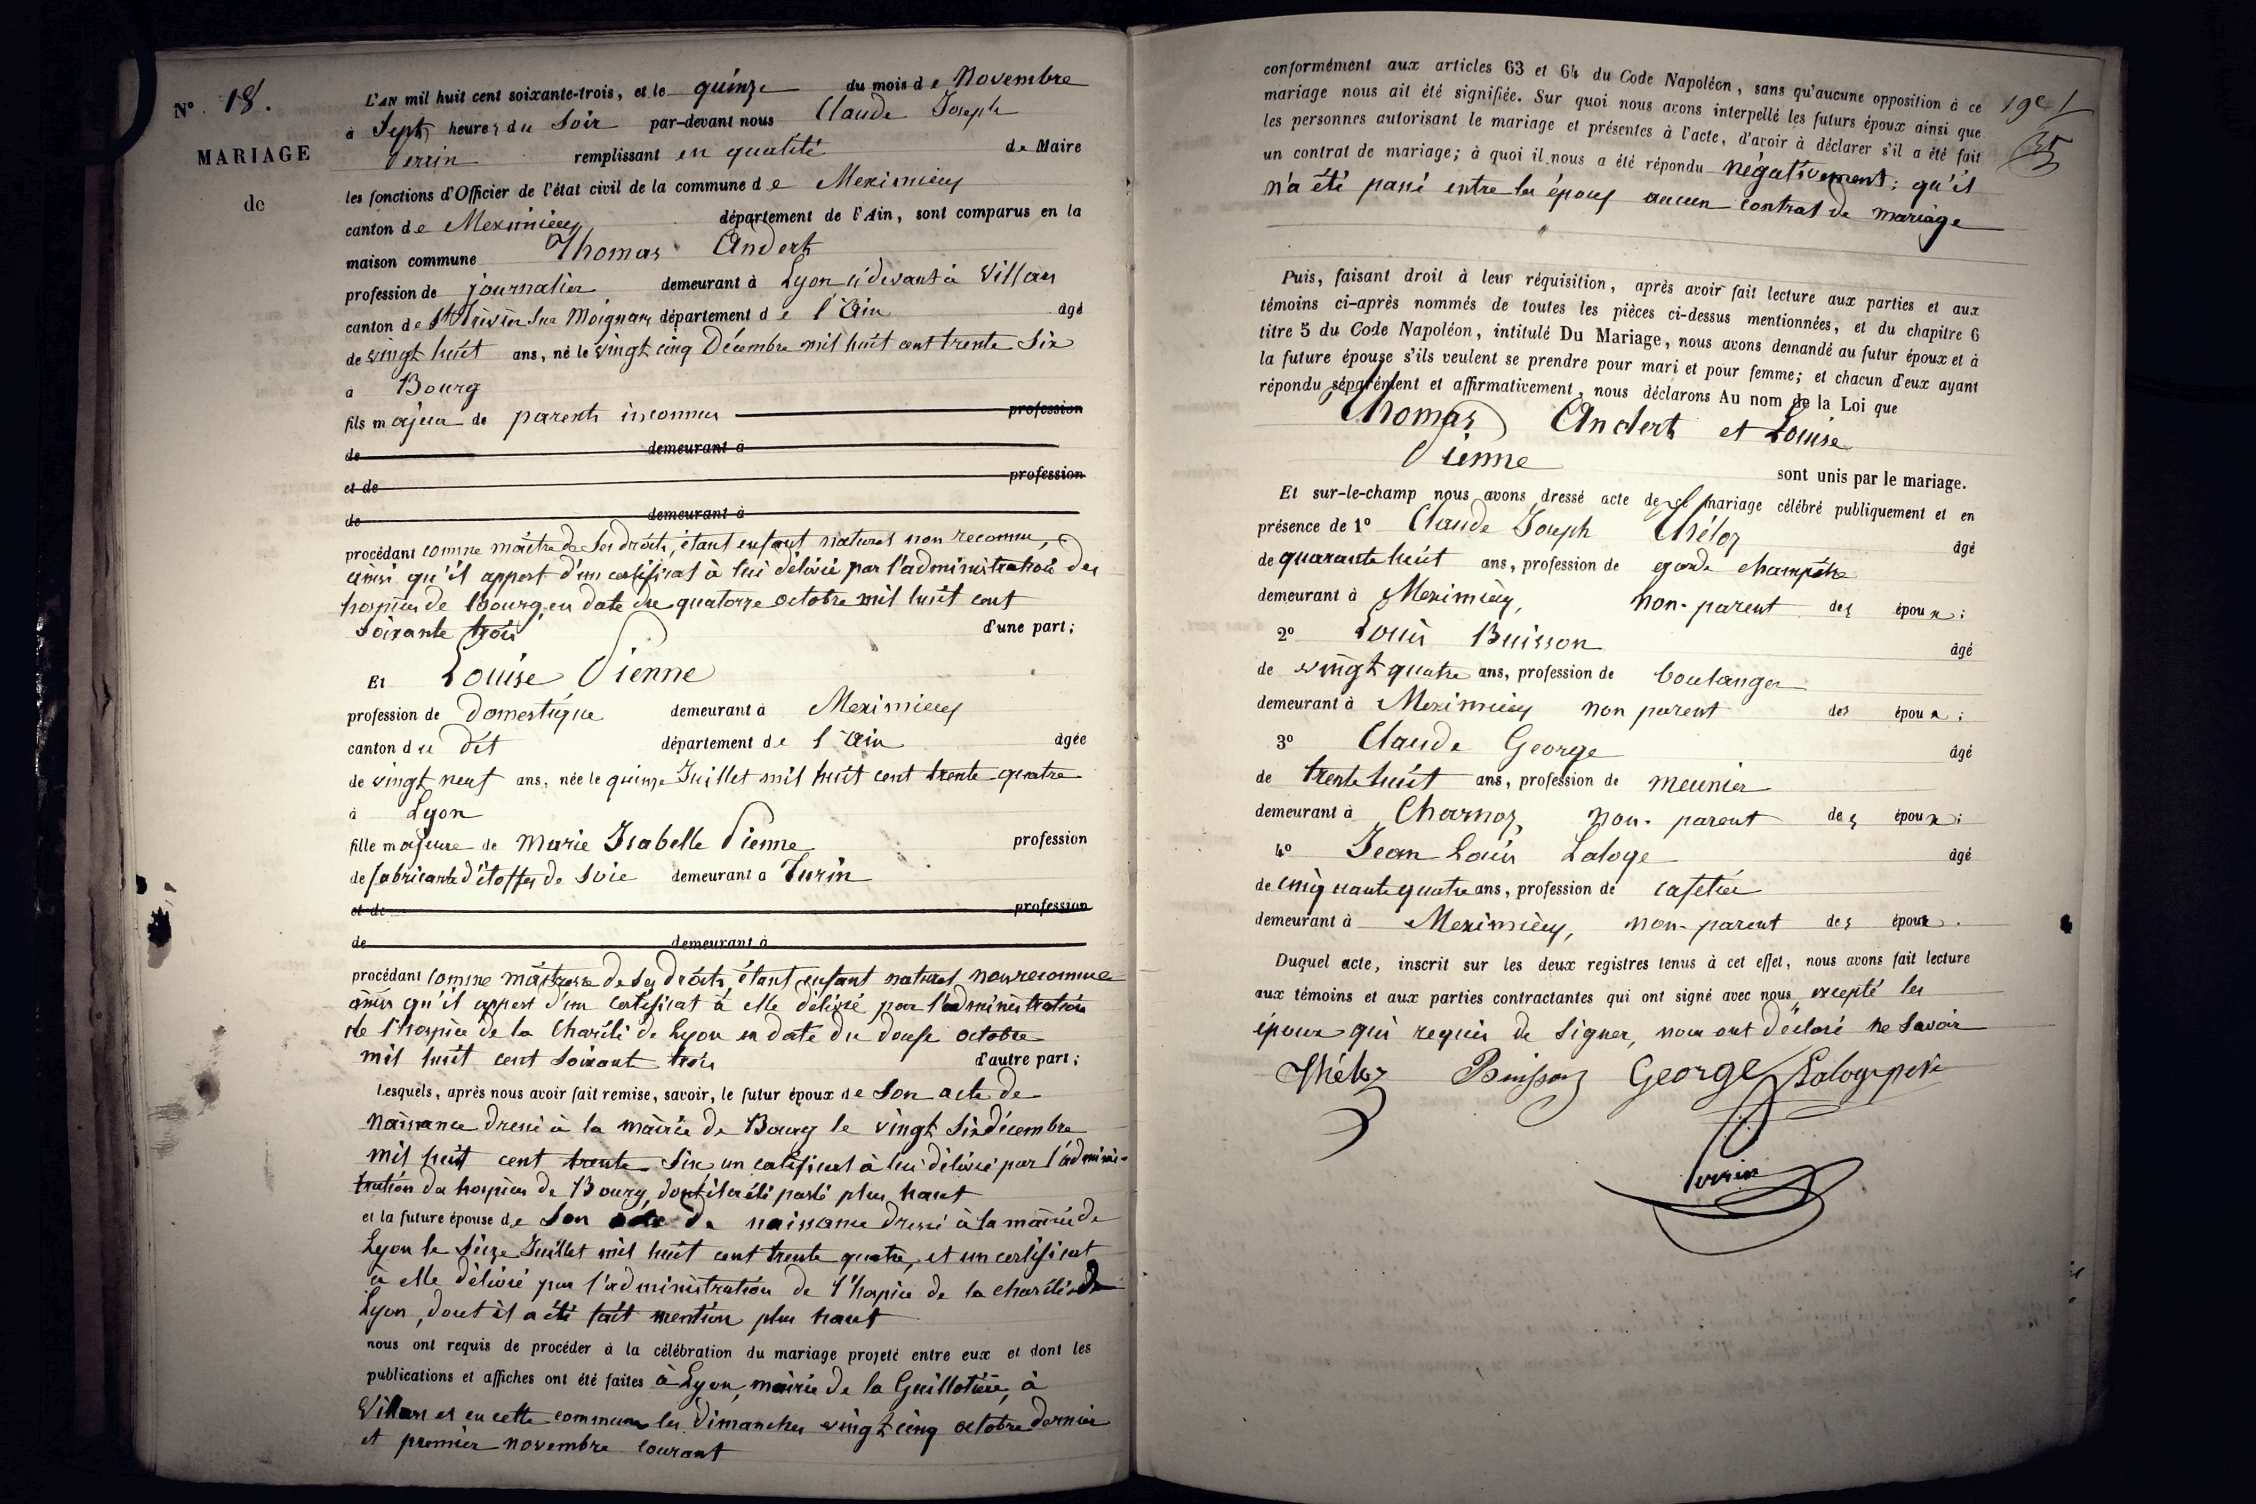 N° 18.
MARIAGE
de
L'AN mil huit cent soixante-trois, et le quinze du mois de Novembre
à Sept heures du Soir par-devant nous Claude Joseph
Perrin remplissant en qualité de Maire
les fonctions d'Officier de l'état civil de la commune de Meximieux
canton de Meximieux département de l'Ain, sont comparus en la
maison commune Thomas Andert
profession de journalier demeurant à Lyon ci devant à Villars
canton de St Trivier Sur Moignans département de l'Ain âgé
de vingt huit ans, né le vingt cinq Décembre mil huit cent trente Six
à Bourg
fils majeur de parents inconnus profession
de demeurant à
et de profession
de demeurant à
procédant comme maître de Ses droits, étant enfant naturel non reconnu,
ainsi qu'il appert d'un certificat à lui délivré par l'administration des
hospices de Bourg en date du quatorze octobre mil huit cent
soixante trois d'une part;
Et Louise Vienne
profession de Domestique demeurant à Meximieux
canton du dit département de l'Ain âgée
de vingt neuf ans, née le quinze Juillet mil huit cent trente quatre
à Lyon
fille majeure de Marie Isabelle Vienne profession
de fabricante d'étoffes de Soie demeurant à Turin
et de profession
de demeurant à
procédant comme maîtresse de Ses droits, étant enfant naturel non reconnue
ainsi qu'il appert d'un certificat à elle délivré par l'administration
de l'hospice de la Charité de Lyon en date du douze octobre
mil huit cent soixante trois d'autre part;
Lesquels, après nous avoir fait remise, savoir, le futur époux de Son acte de
Naissance dressé à la mairie de Bourg le vingt Six décembre
mil huit cent trente Six un certificat à lui délivré par l'adminis-
tration des hospices de Bourg, dont il a été parlé plus haut
et la future épouse de Son acte de naissance dressé à la mairie de
Lyon le Seize Juillet mil huit cent trente quatre, et un certificat
à elle délivré par l'administration de l'hospice de la charité de
Lyon, dont il a été fait mention plus haut
nous ont requis de procéder à la célébration du mariage projeté entre eux et dont les
publications et affiches ont été faites à Lyon, mairie de la Guillotière, à
Villars et en cette commune les Dimanches vingt cinq octobre dernier
et premier novembre courant
conformément aux articles 63 et 64 du Code Napoléon, sans qu'aucune opposition à ce
mariage nous ait été signifiée. Sur quoi nous avons interpellé les futurs époux ainsi que
les personnes autorisant le mariage et présentes à l'acte, d'avoir à déclarer s'il a été fait
un contrat de mariage; à quoi il nous a été répondu négativement; qu'il
n'a été passé entre les époux aucun contrat de mariage
Puis, faisant droit à leur réquisition, après avoir fait lecture aux parties et aux
témoins ci-après nommés de toutes les pièces ci-dessus mentionnées, et du chapitre 6
titre 5 du Code Napoléon, intitulé Du Mariage, nous avons demandé au futur époux et à
la future épouse s'ils veulent se prendre pour mari et pour femme; et chacun d'eux ayant
répondu séparément et affirmativement, nous déclarons Au nom de la Loi que
Thomas Andert et Louise
Vienne sont unis par le mariage.
Et sur-le-champ nous avons dressé acte de ce mariage célébré publiquement et en
présence de 1° Claude Joseph Théloz âgé
de quarante huit ans, profession de garde champêtre
demeurant à Meximieux, non-parent des époux;
2° Louis Buisson âgé
de vingt quatre ans, profession de boulanger
demeurant à Meximieux non parent des époux;
3° Claude George âgé
de trente huit ans, profession de meunier
demeurant à Charnoz, non-parent des époux;
4° Jean Louis Laloge âgé
de cinquante quatre ans, profession de cafetier
demeurant à Meximieux, non-parent des époux.
Duquel acte, inscrit sur les deux registres tenus à cet effet, nous avons fait lecture
aux témoins et aux parties contractantes qui ont signé avec nous excepté les
époux qui requis de Signer, nous ont déclaré ne Savoir
Théloz Buisson George Laloge père
Perrin